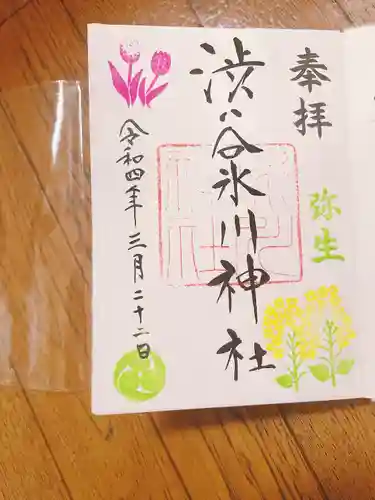 奉拝
弥生
渋谷氷川神社
令和四年三月二十二日